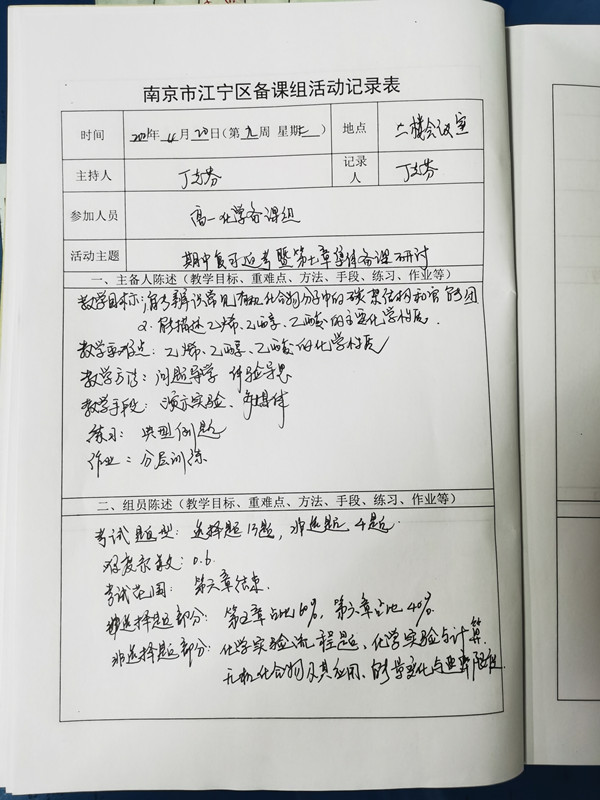 南京市江宁区备课组活动记录表
时间 2021年 4月 20日(第九周 星期二) 地点 二楼会议室
主持人 丁志芬 记录人 丁志芬
参加人员 高一化学备课组
活动主题 期中复习迎考暨第七章集体备课研讨
一、主备人陈述(教学目标、重难点、方法、手段、练习、作业等)
教学目标:能辨识常见有机化合物分子中的碳架结构和官能团
2.能描述乙烯、乙醇、乙酸的主要化学性质.
教学重难点:乙烯、乙醇、乙酸的化学性质
教学方法:问题导学 体验导思
教学手段:演示实验、多媒体
练习:典型例题
作业:分层训练
二、组员陈述(教学目标、重难点、方法、手段、练习、作业等)
考试题型:选择题13题,非选题 4题.
难度系数:0.6.
考试范围:第六章结束.
选择题部分:第五章占比60%,第六章占比40%.
非选择题部分:化学实验流程题、化学实验与计算.
无机化合物及其应用、能学变化与